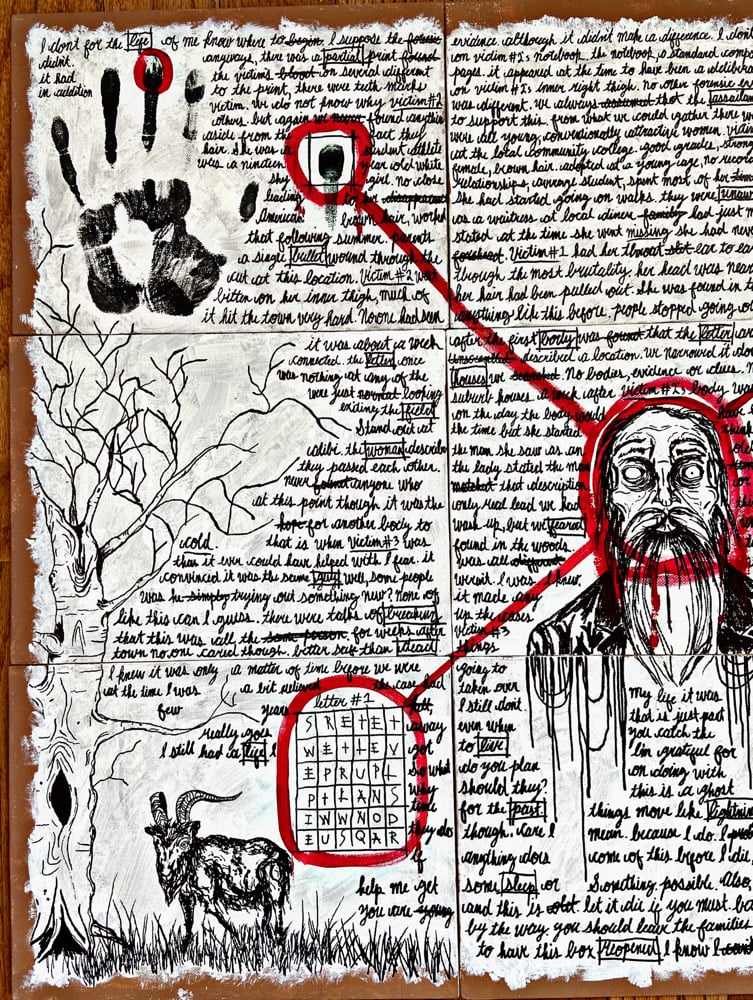 I dont for the life of me know where to begin. I suppose the forensic
didn't. anyways, there was a partial print found
it had the victims blood on several different
in addition to the print, there were teeth marks
victim. we do not know why victim #2
others. but again we never found anything
aside from the fact they
hair. She was a student athlete
was a nineteen year old white
shy girl. no clues
leading to her disappearance
American brown hair, worked
that following summer. parents
a single bullet wound through the
cut at this location. Victim #2 was
bitten on her inner thigh, much of
it hit the town very hard. No one had seen
evidence. although it didn't make a difference. I dont
on victim #1's notebook. the notebook, a standard comp
pages. it appeared at the time to have been a deliberate
on victim #1's inner right thigh. no other forensic ev
was different. we always assumed that the assailant
to support this. from what we could gather there w
were all young, conventionally attractive women. Victim
at the local community college. good grades, strong
female, brown hair. adopted at a young age, no record
relationships, average student, spent most of her time
She had started going on walks. they were unaw
as a waitress at local diner. family had just m
stated at the time she went missing she had never
forehead. Victim #1 had her throat slit ear to ea
through the most brutality. her head was near
her hair had been pulled out. She was found in t
anything like this before. people stopped going o
it was about a week
connected. the letter once
was nothing at any of the
were just normal looking
exiting the field
Stand out at
alibi. the woman describe
they passed each other.
never found anyone who
at this point though it was the
hope for another body to
cold. that is when Victim #3 was
than it ever could have helped with I fear. it
convinced it was the same guy well, some people
was he simply trying out something new? None of
like this can I guess. there were talks of breaking
that this was all the same person. for weeks after
town no one cared though. better safe than dead
after the first body was found that the letter
unscrambled described a location. we narrowed it do
houses we searched No bodies, evidence or clues.
suburb houses. a week after Victim #1's body was
on the day the body woods have
the time but she started think
the man she saw as an
the lady stated the man
matched that description
only real lead we had
wash up, but we feared
found in the woods.
was all different
weren't. I was. I knew.
it made any
up the cases
Victim #3
things
I knew it was only a matter of time before we were
at the time I was a bit relieved the case had
few years felt
really goes away
I still had a life I got
so what
why
time
they do
if
help me get
you were young
letter #1
S R E T E T
W E T T E V
E P R U P L
P T L A N S
I W W N O D
E U S Q A R
going to
taken over my life it was
I still dont. that is just part
even when you catch the
to live I'm grateful for
do you plan on doing with
should they? this is a ghost
for the past things move like lightning
though. Care I mean. because I do. I
anything does come of this before I die.
some sleep or Something. possible. Also,
and this is old let it die if you must. but
by the way you should leave the families
to have this box reopened I know I